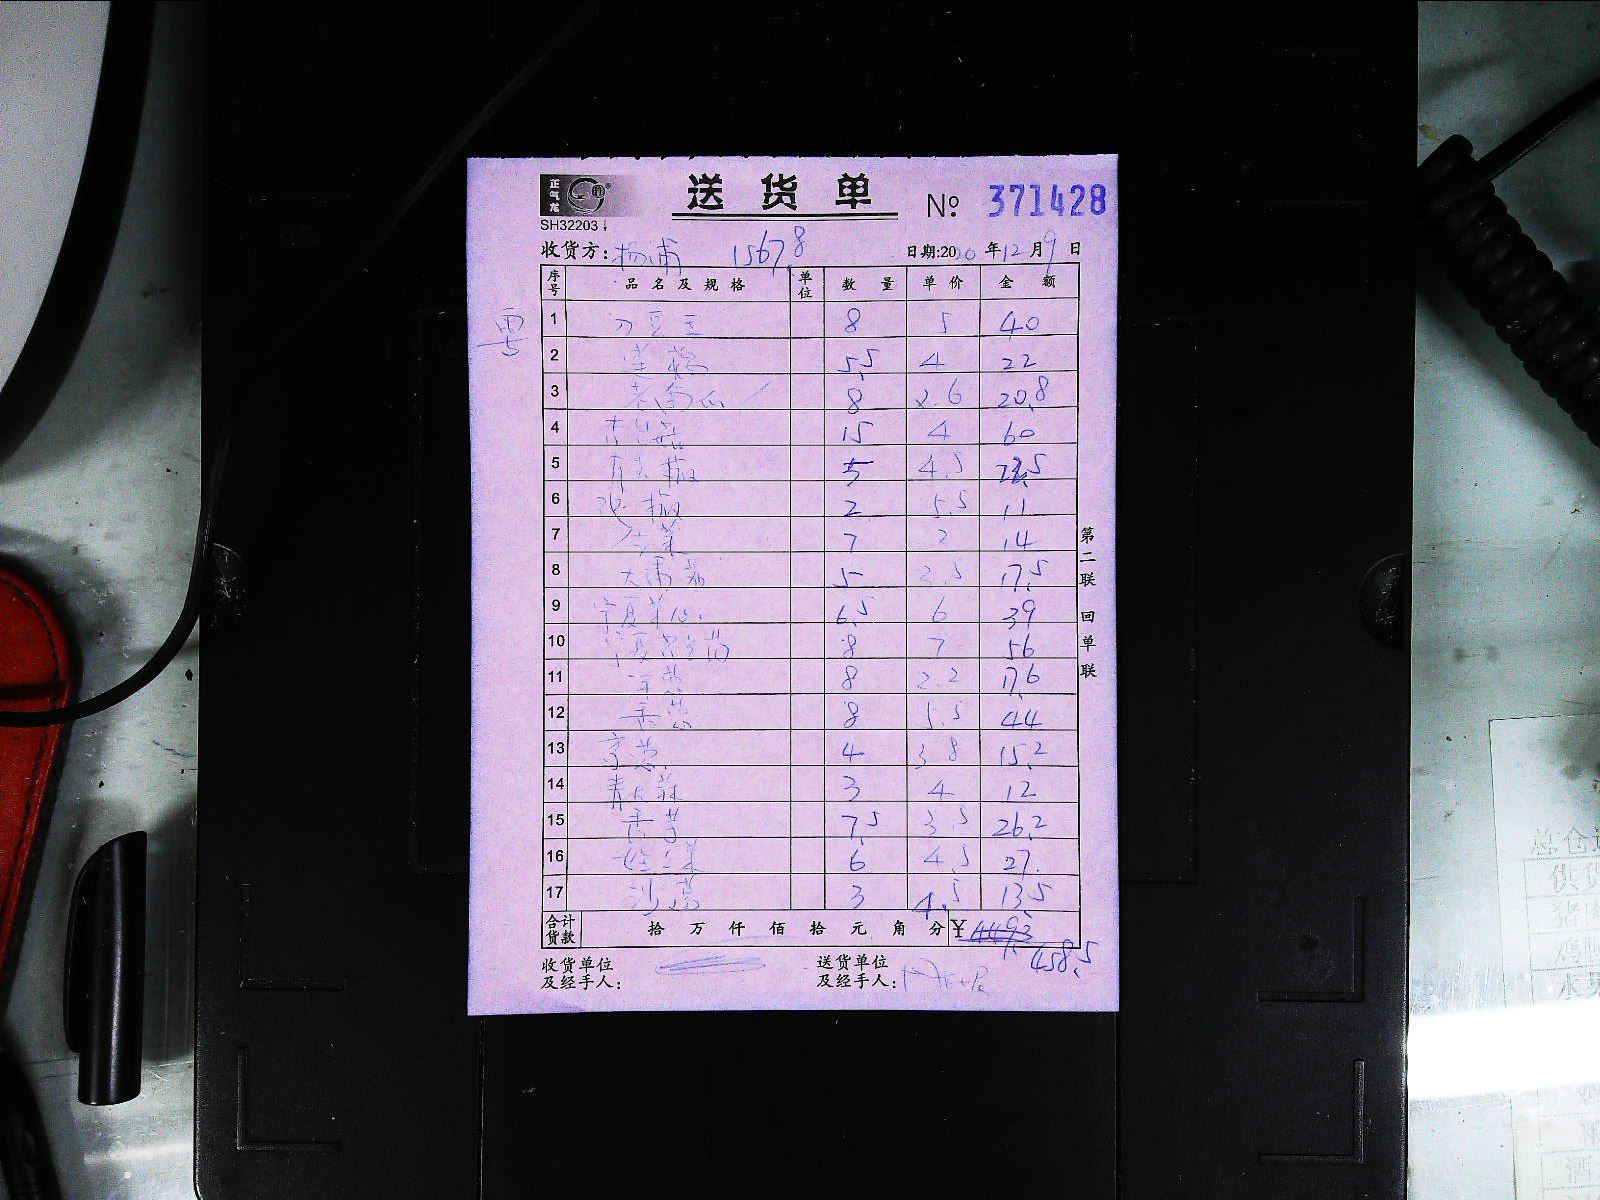 正气龙
送货单 № 371428
SH32203
收货方: 杨浦 1567.8 日期:2020年12月9日
序号 品名及规格 单位 数量 单价 金额
1 刀豆王 8 5 40
2 莲藕 5.5 4 22
3 老南瓜 8 2.6 20.8
4 15 4 60
5 青尖椒 5 4.5 22.5
6 泡椒 2 5.5 11
7 7 2 14
8 5 3.5 17.5
9 宁夏菜心 6.5 6 39
10 宁夏 8 7 56
11 8 2.2 17.6
12 香葱 8 5.5 44
13 京葱 4 3.8 15.2
14 青大蒜 3 4 12
15 香芹 7.5 3.5 26.2
16 6 4.5 27
17 3 4.5 13.5
合计货款 拾 万 仟 佰 拾 元 角 分 ¥ 4493
458.5
收货单位及经手人: 送货单位及经手人:
第二联 回单联
总仓
供货